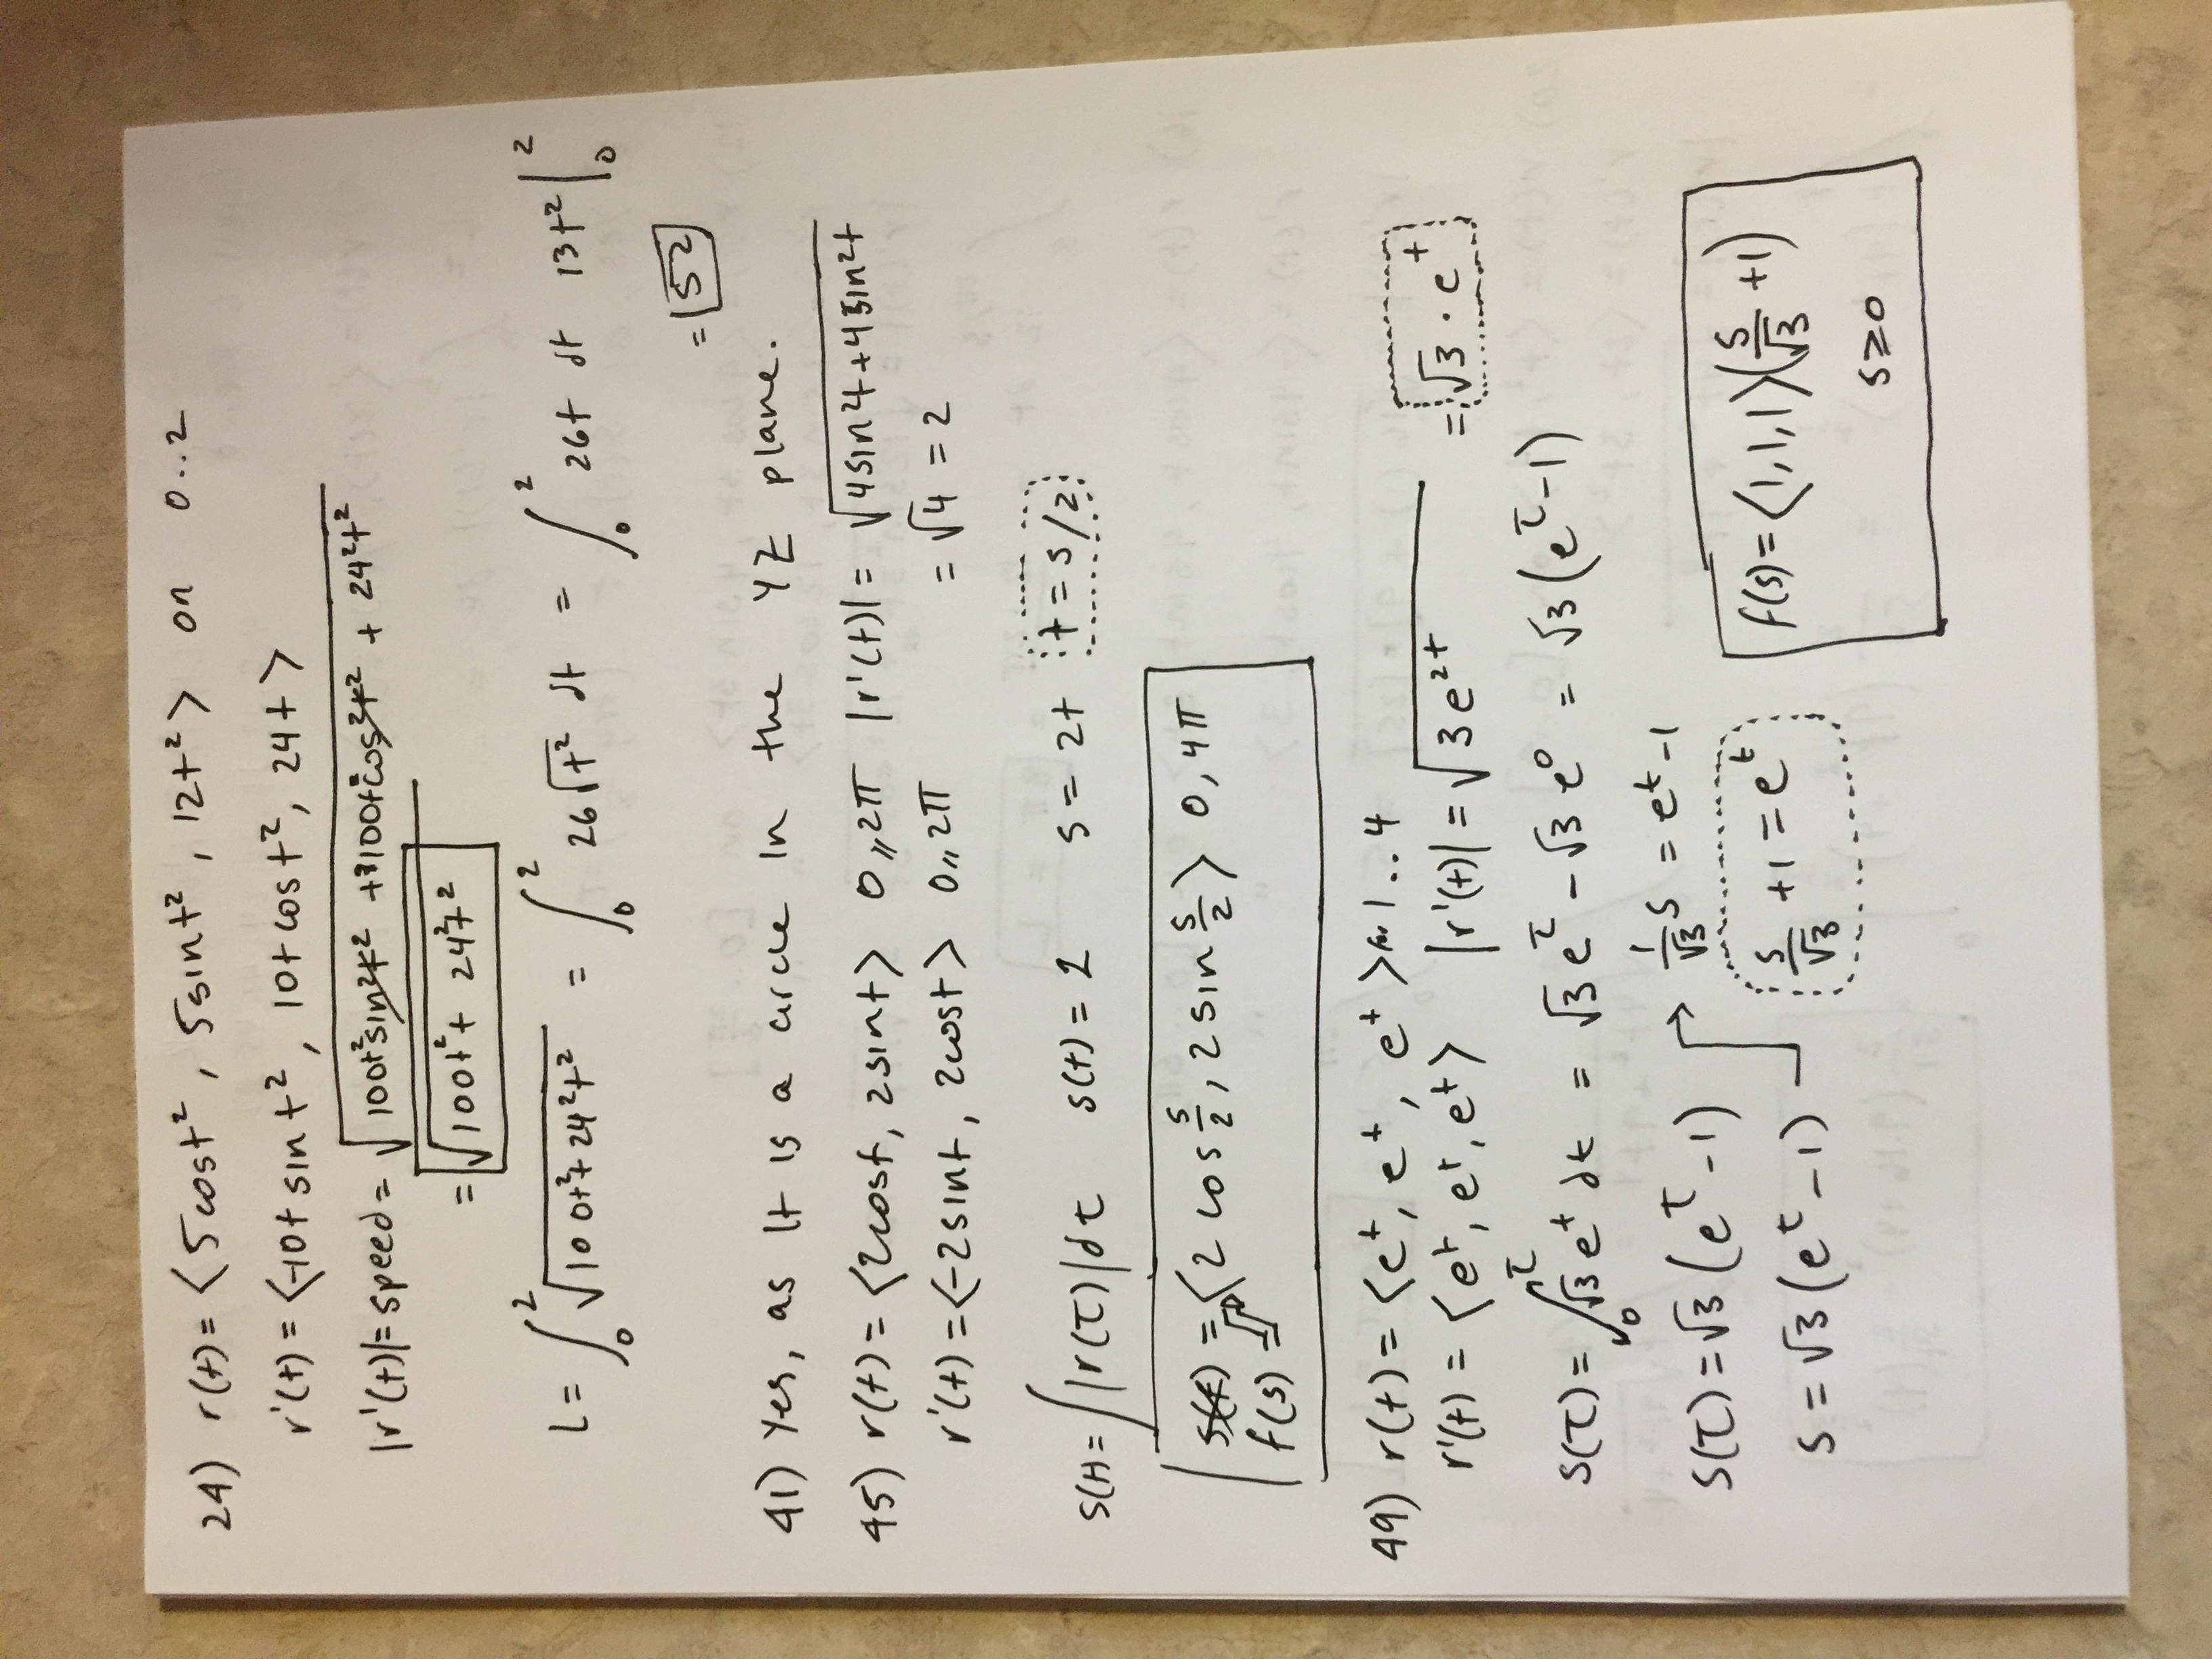 24) r(t) = ⟨5cost², 5sint², 12t²⟩ on 0..2
r'(t) = ⟨-10t sin t², 10t cos t², 24t⟩
|r'(t)| = speed = √(100t²sin²t² + 100t²cos²t² + 24²t²)
= √(100t² + 24²t²)
L = ∫₀² √(100t² + 24²t²) = ∫₀² 26√t² dt = ∫₀² 26t dt 13t² |₀²
= 52
41) Yes, as It is a circle in the YZ plane.
45) r(t) = ⟨2cost, 2sint⟩ 0,,2π |r'(t)| = √(4sin²t + 4sin²t)
r'(t) = ⟨-2sint, 2cost⟩ 0,,2π = √4 = 2
s(t) = ∫|r(τ)|dτ s(t) = 2 s = 2t t = s/2
s(t) = ⟨2 cos s/2, 2 sin s/2⟩ 0, 4π
f(s) =
49) r(t) = ⟨e^t, e^t, e^t⟩ for 1..4
r'(t) = ⟨e^t, e^t, e^t⟩ |r'(t)| = √(3e^2t) = √3 · e^t
s(τ) = ∫₀^τ √3 e^t dt = √3 e^τ - √3 e^0 = √3 (e^τ - 1)
s(τ) = √3 (e^τ - 1) 1/√3 s = e^t - 1
s = √3 (e^t - 1) s/√3 + 1 = e^t
f(s) = ⟨1,1,1⟩(s/√3 + 1)
s ≥ 0